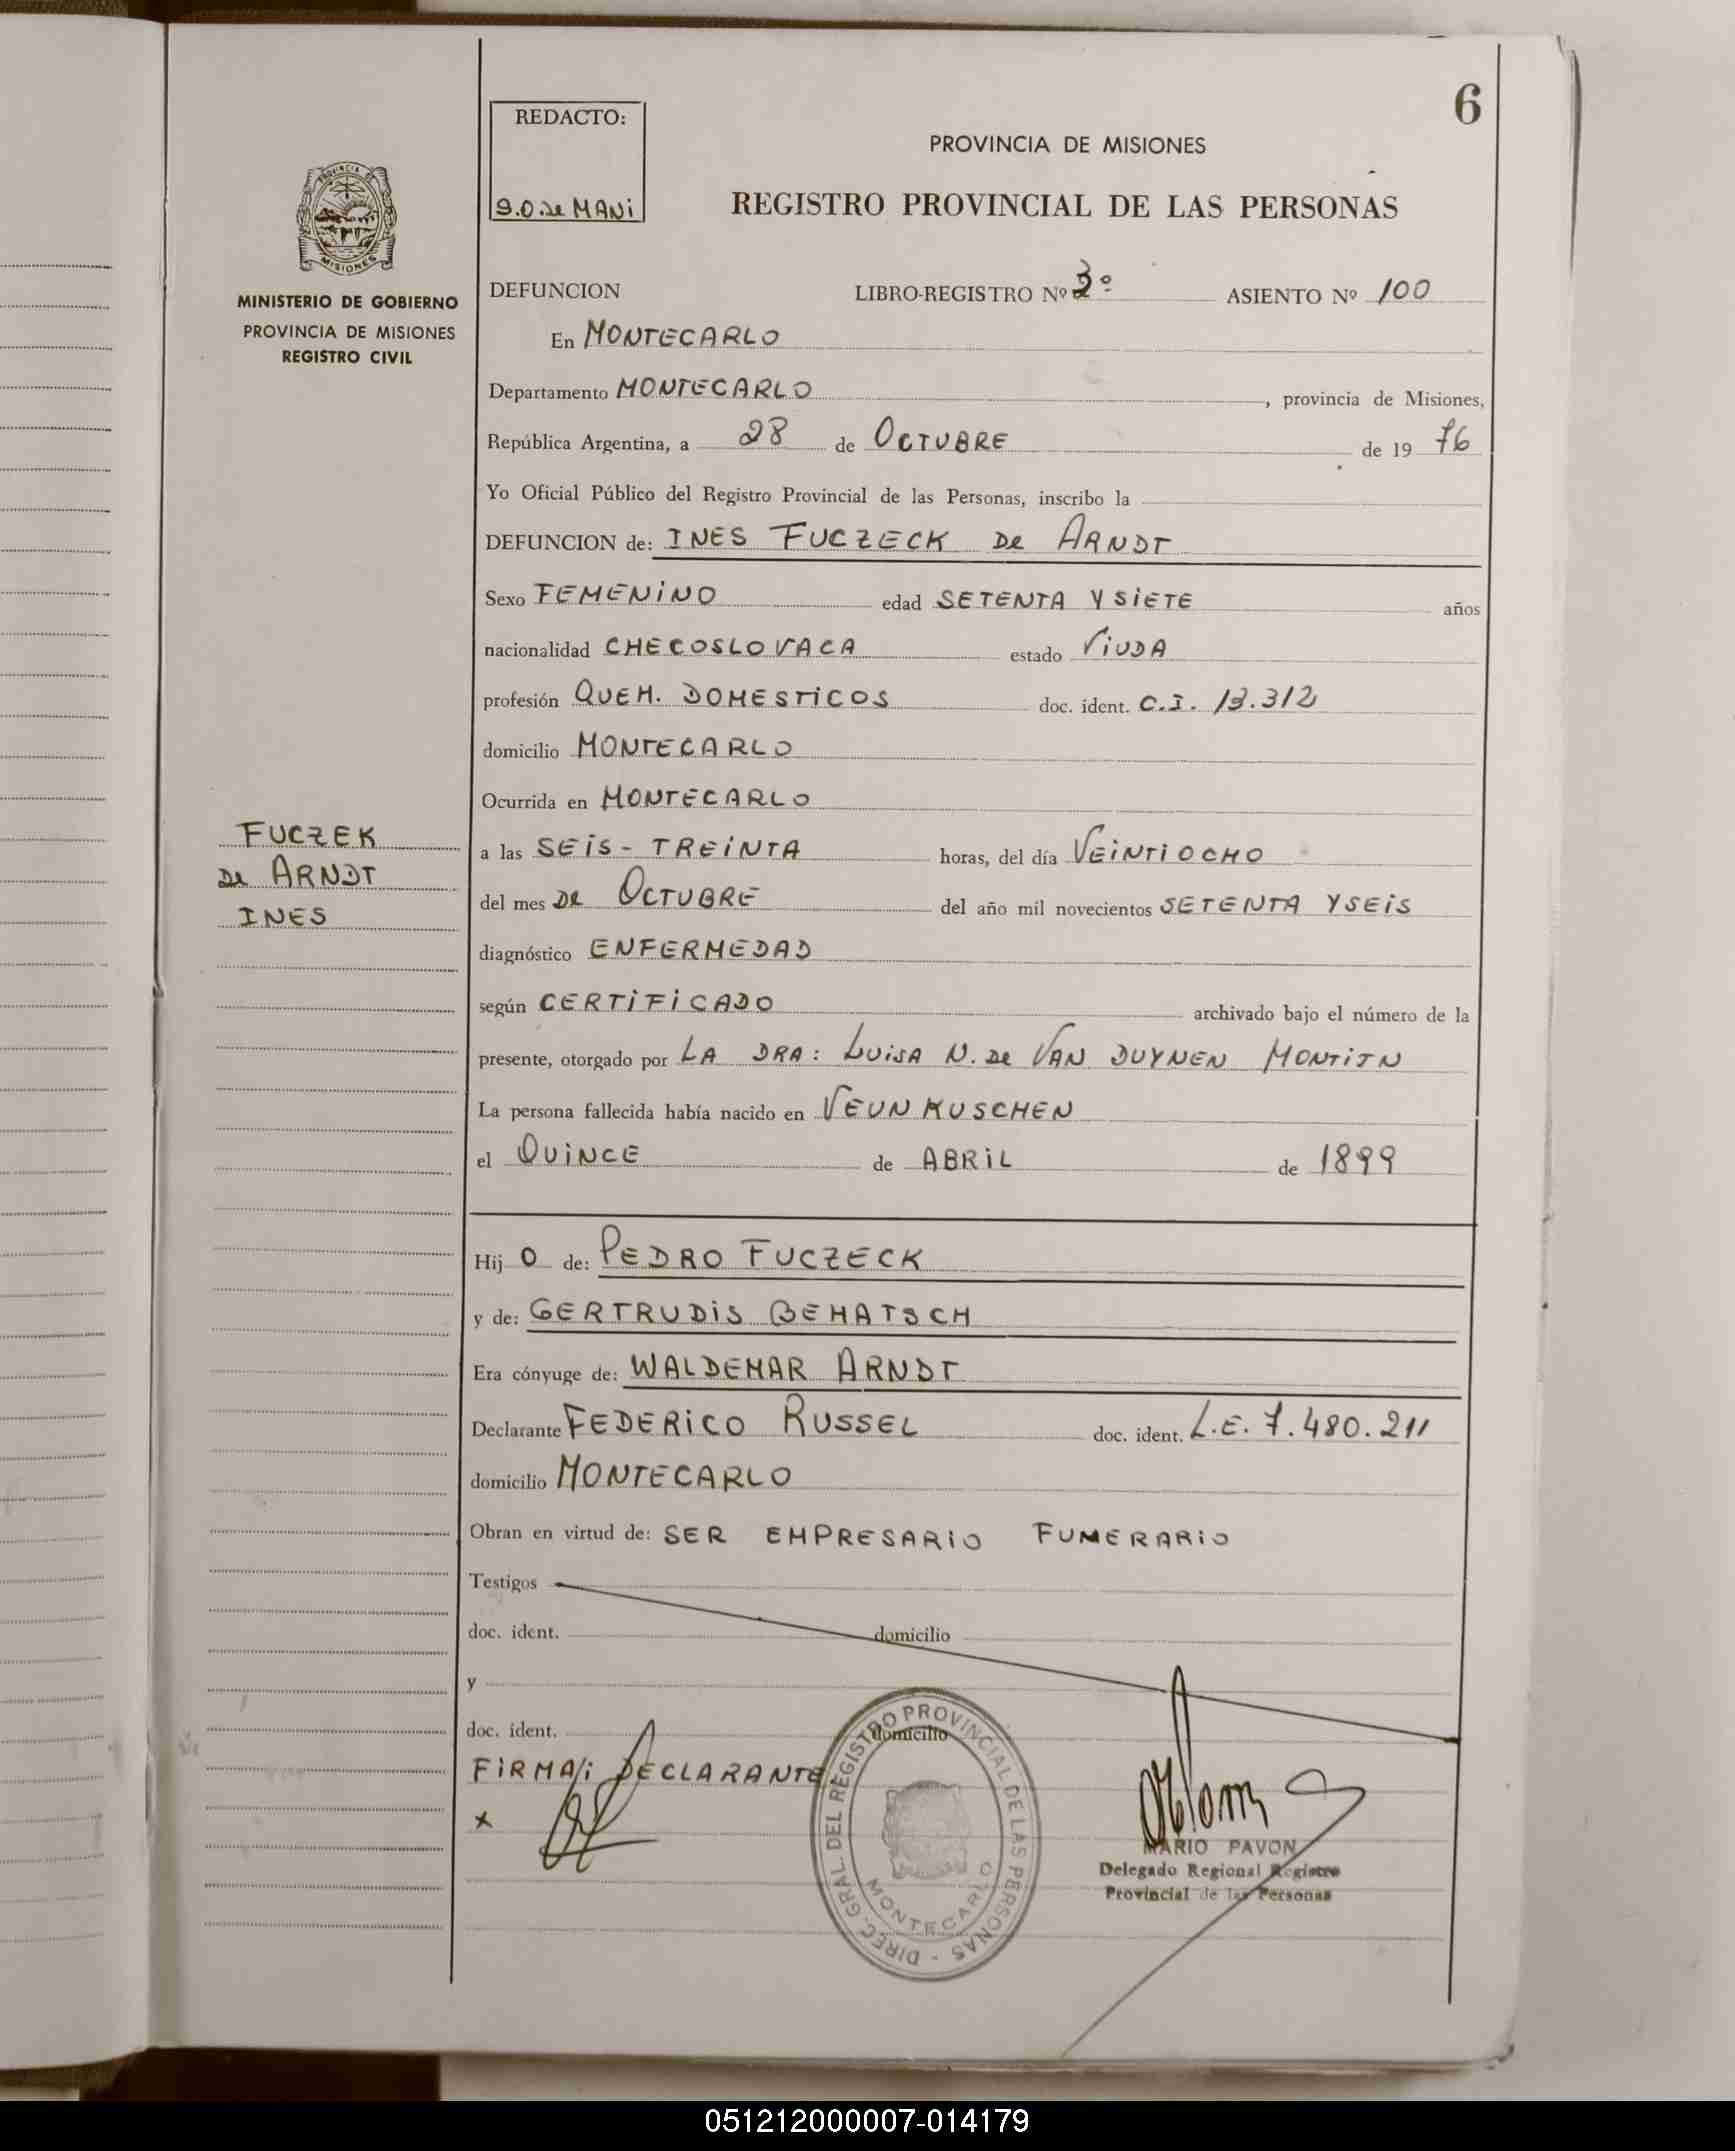 6
REDACTO:
S.O. de MANI
PROVINCIA DE MISIONES
REGISTRO PROVINCIAL DE LAS PERSONAS
PROVINCIA DE
MISIONES
MINISTERIO DE GOBIERNO
PROVINCIA DE MISIONES
REGISTRO CIVIL
DEFUNCION LIBRO-REGISTRO Nº 3º ASIENTO Nº 100
En MONTECARLO
Departamento MONTECARLO, provincia de Misiones,
República Argentina, a 28 de OCTUBRE de 19 76
Yo Oficial Público del Registro Provincial de las Personas, inscribo la
DEFUNCION de: INES FUCZECK De ARNDT
Sexo FEMENINO edad SETENTA Y SIETE años
nacionalidad CHECOSLOVACA estado VIUDA
profesión QUEH. DOMESTICOS doc. ident. C.I. 13.312
domicilio MONTECARLO
Ocurrida en MONTECARLO
FUCZEK
De ARNDT
INES
a las SEIS - TREINTA horas, del día VEINTIOCHO
del mes De OCTUBRE del año mil novecientos SETENTA Y SEIS
diagnóstico ENFERMEDAD
según CERTIFICADO archivado bajo el número de la
presente, otorgado por LA DRA: LUISA N. De VAN DUYNEN MONTIJN
La persona fallecida había nacido en VEUNKUSCHEN
el QUINCE de ABRIL de 1899
Hij O de: PEDRO FUCZECK
y de: GERTRUDIS BEHATSCH
Era cónyuge de: WALDEMAR ARNDT
Declarante FEDERICO RUSSEL doc. ident. L.E. 7.480.211
domicilio MONTECARLO
Obran en virtud de: SER EMPRESARIO FUMERARIO
Testigos
doc. ident. domicilio
y
doc. ident. domicilio
FIRMA/i DECLARANTE
x
DIREC. GRAL. DEL REGISTRO PROVINCIAL DE LAS PERSONAS -
MONTECARLO
MARIO PAVON
Delegado Regional Registro
Provincial de las Personas
051212000007-014179